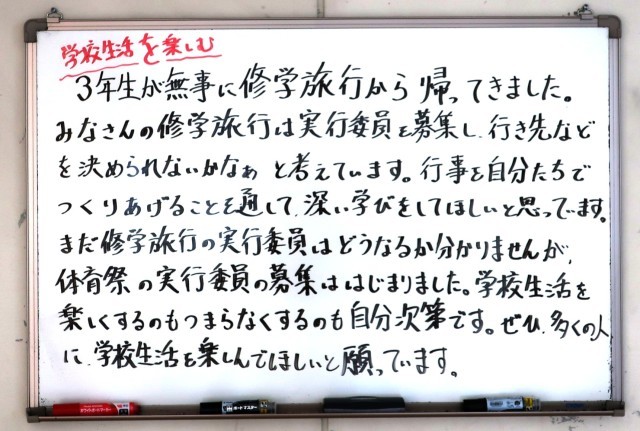 学校生活を楽しむ
3年生が無事に修学旅行から帰ってきました。
みなさんの修学旅行は実行委員を募集し、行き先など
を決められないかなぁと考えています。行事を自分たちで
つくりあげることを通して、深い学びをしてほしいと思っています。
まだ修学旅行の実行委員はどうなるか分かりませんが、
体育祭の実行委員の募集ははじまりました。学校生活を
楽しくするのもつまらなくするのも自分次第です。ぜひ、多くの人
に、学校生活を楽しんでほしいと願っています。
ホワイトボードマーカー
ボードマスター